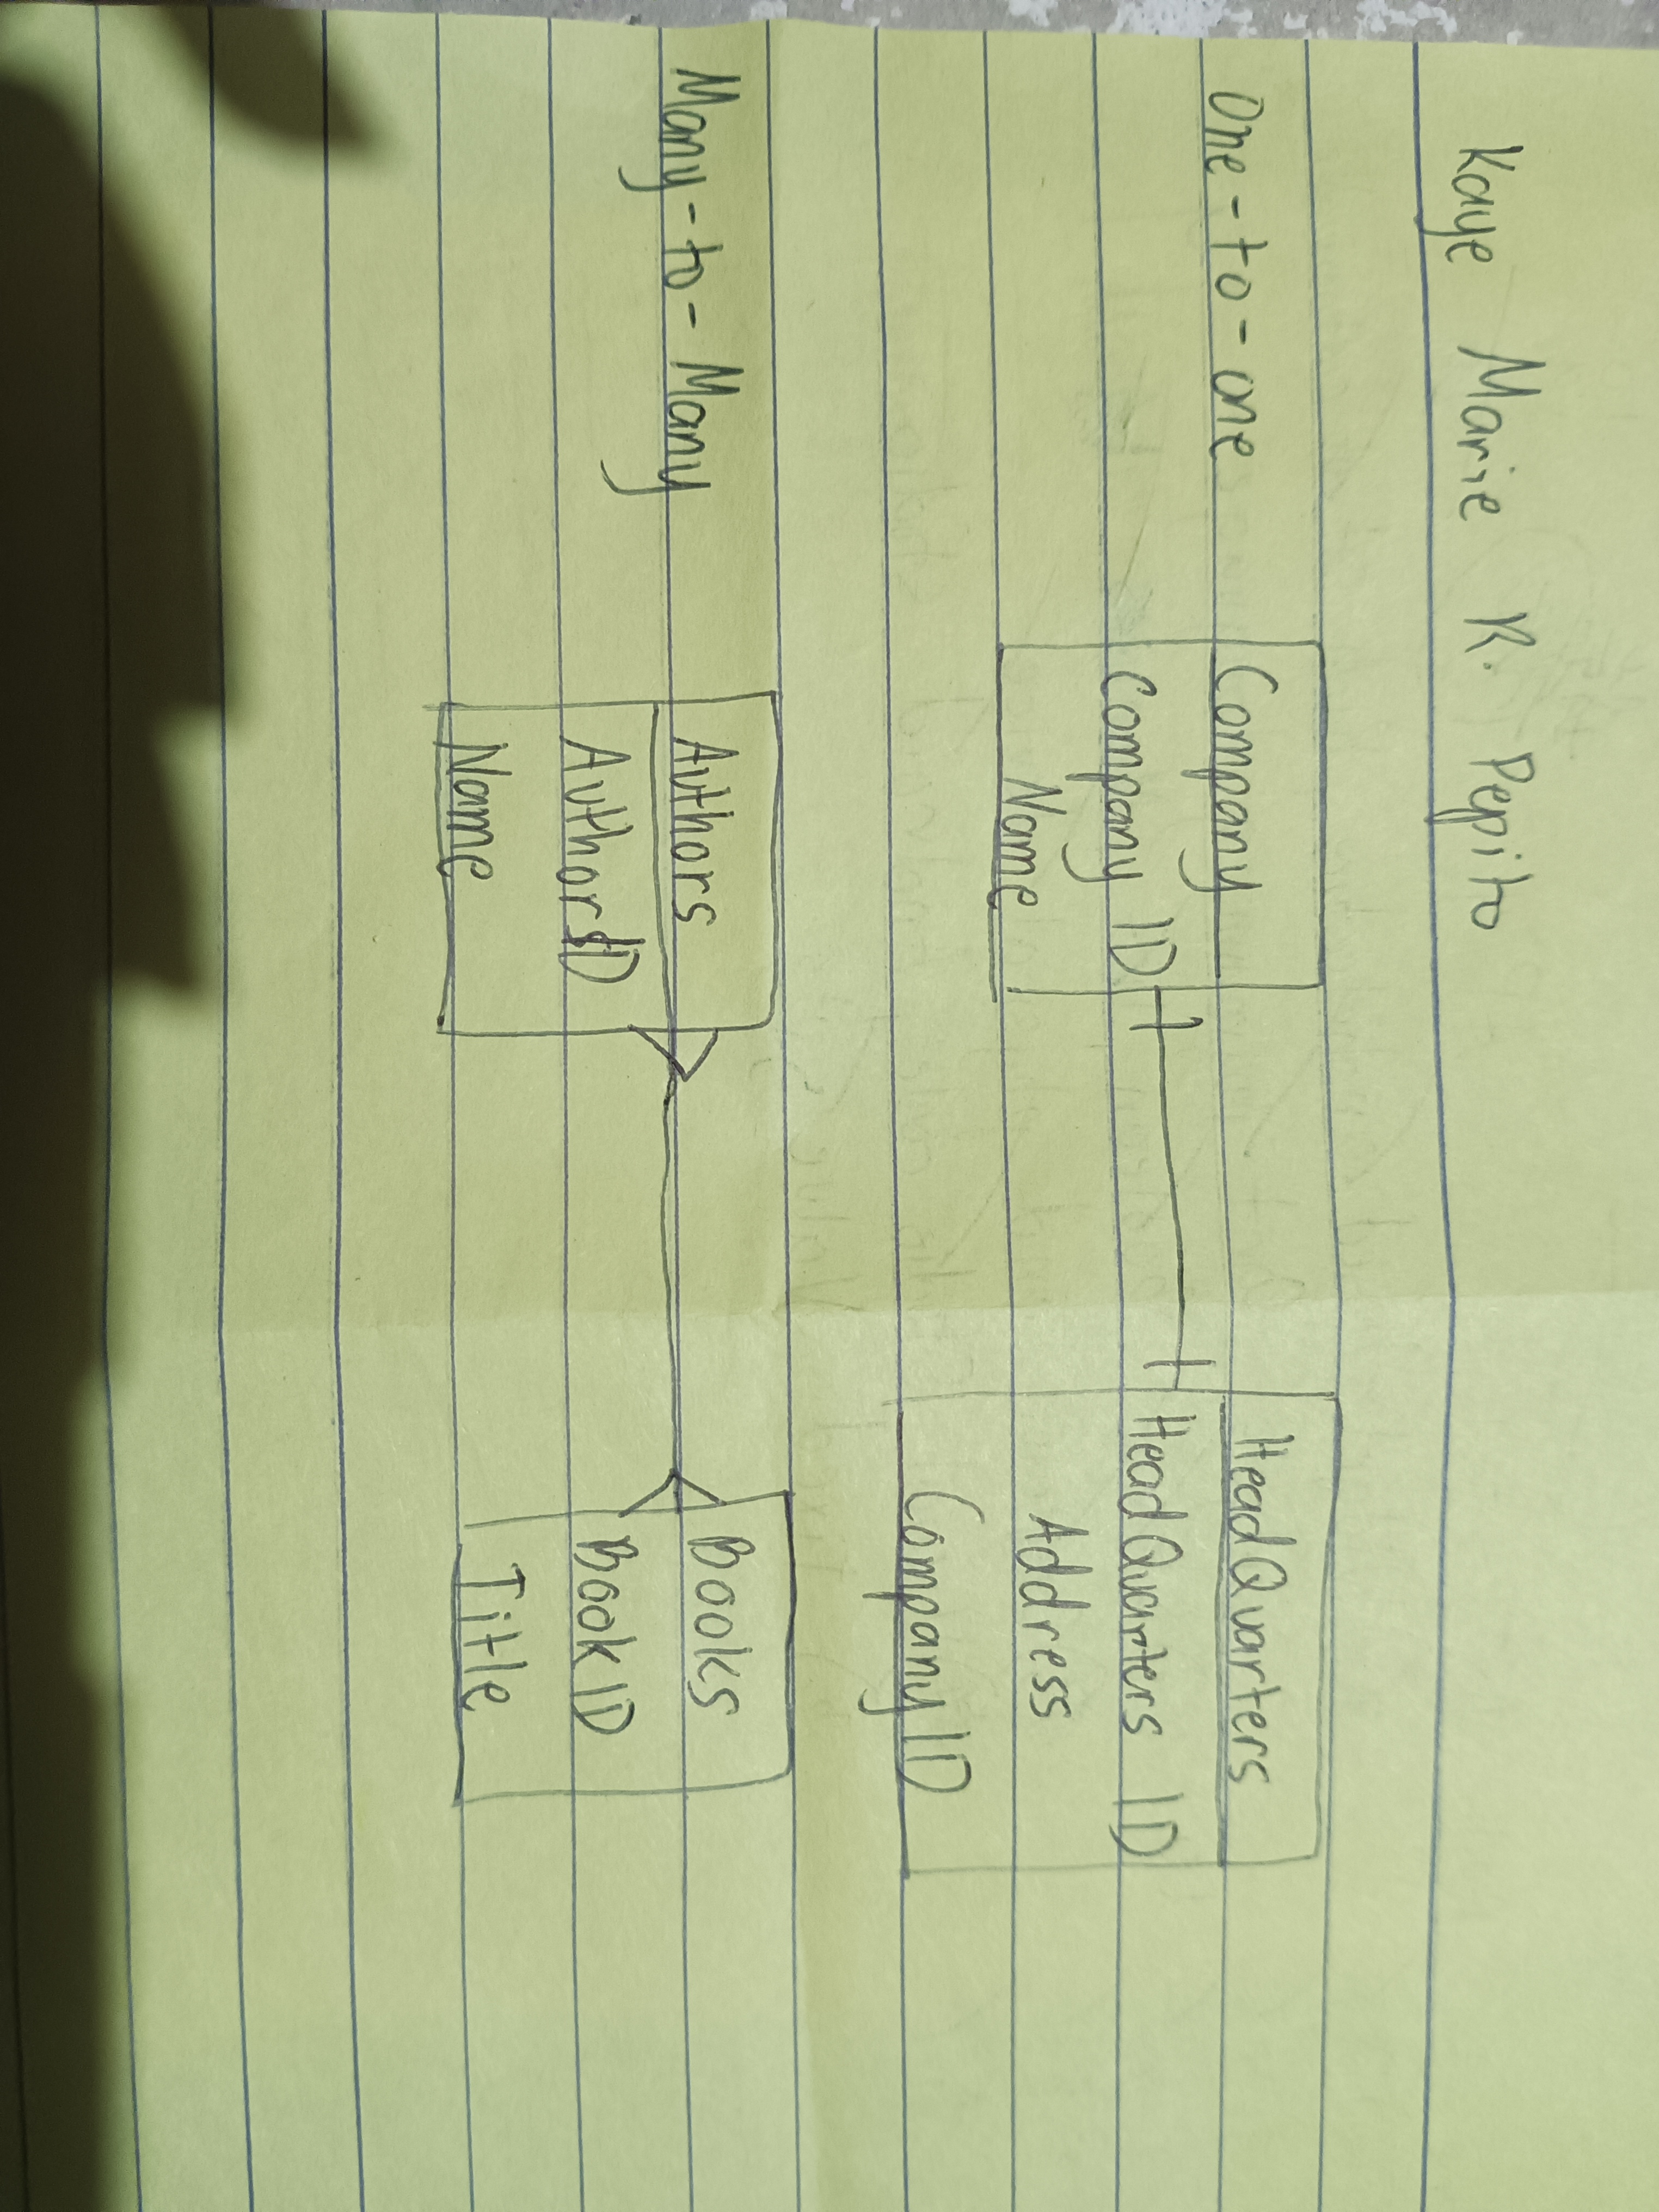 Kaye Marie K. Pepito
One-to-one
Company
Company ID
Name
HeadQuarters
HeadQuarters ID
Address
Company ID
Many-to-Many
Authors
Author ID
Name
Books
Book ID
Title